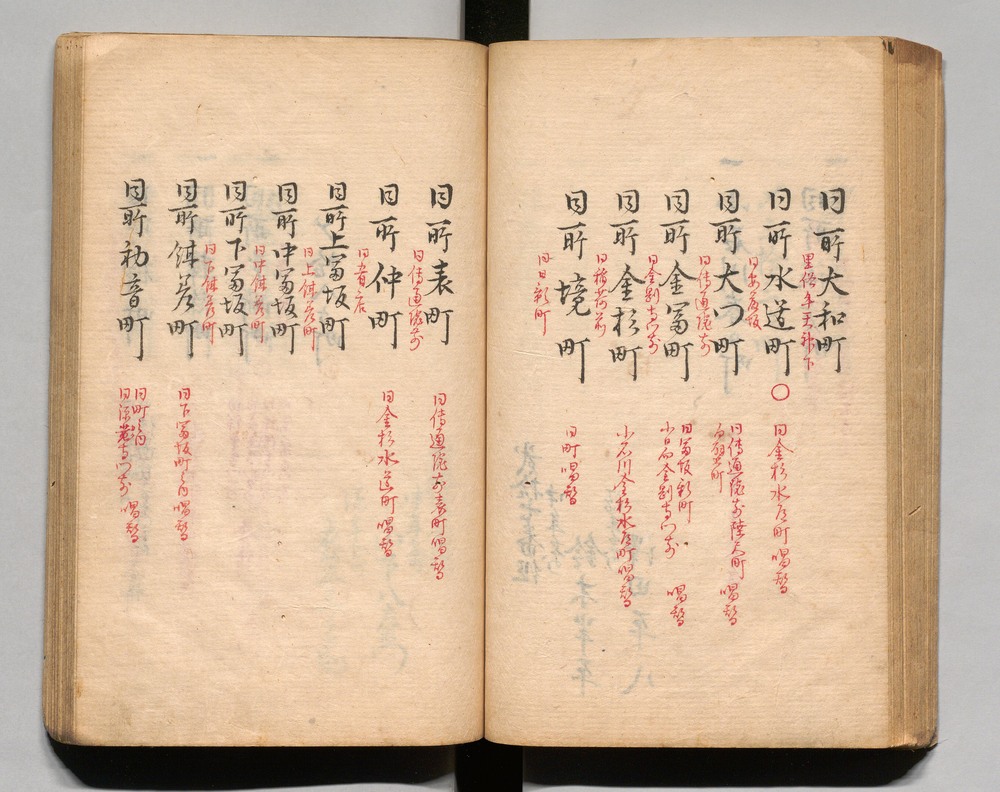 同所大和町
里俗牛天神下
同所水道町
○同金杉水道町唱替
同安藤坂
同所大門町
同伝通院前陸尺町唱替
同所金冨町
同冨坂新町
小日向金剛寺門前 唱替
同金剛寺門前
同所金杉町
小石川金杉水道町唱替
同稲荷前
同所境町
同町唱替
同日新町
同所表町
同伝通院前表町唱替
同伝通院前
同所仲町
同金杉水道町唱替
同所上冨坂町
同上餌差町
同所中冨坂町
同中餌差町
同所下冨坂町
同下餌差町
同所餌差町
同下冨坂町之内唱替
同所初音町
同町之内
同源覚寺門前 唱替